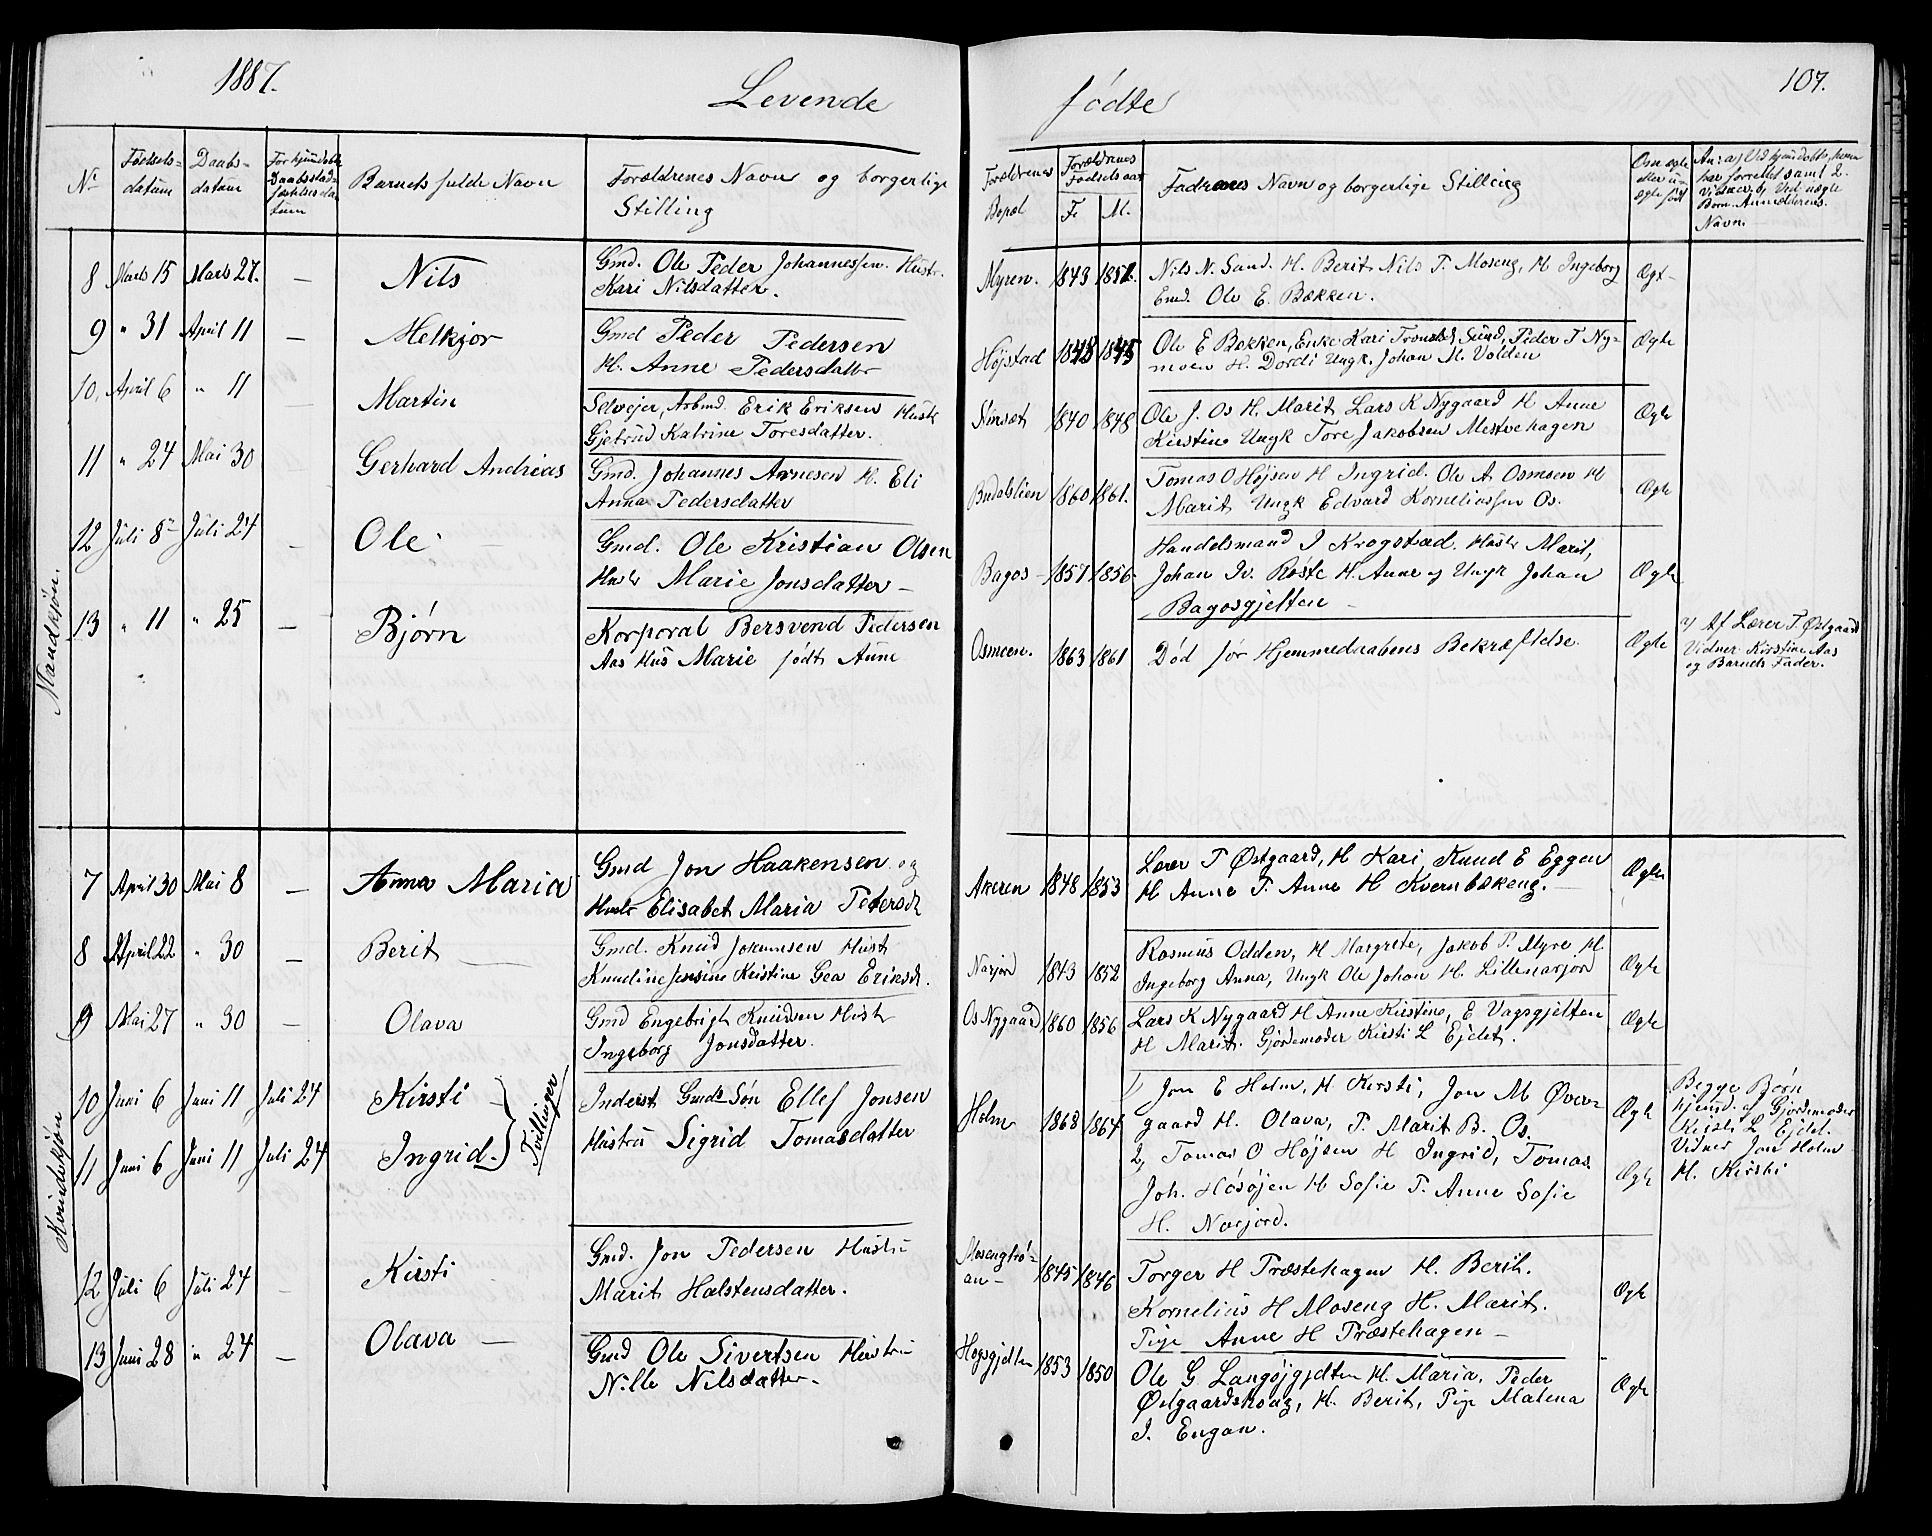 1887.
Levende
fødte
107.
No
Fødsels=
datum
Daabs=
datum
Barnets fulde Navn
Forældrenes Navn og borgerlige
Stilling
Forældrenes
Bopæl
Forældrenes
Fødselsaar
F.
M.
Faddrenes Navn og borgerlige Stilling
Om ægte
eller u=
ægte født
Navn.
Mandkjøn.
8 Marts 15 Marts 27. — Nils
Gmd. Ole Peder Johannessen. Hustr.
Kari Nilsdatter.
Myren. 1843 1851.
Nils N. Sund. H. Berit, Nils P. Moseng, H Ingeborg
Emd. Ole E. Bækken.
Ægt-
9 " 31 April 11 — Melkjor
Gmd Peder Pedersen
H. Anne Pedersdatter
Højstad 1848 1845
Ole E Bækken, Enke Kari Tronsdt Sund, Peder T Ny-
moen H. Dordi Ungk. Johan M. Volden
Ægte
10, April 6 " 11 Martin
Selvejer, Arbmd. Erik Eriksen Hustr
Gjetrud Katrine Toresdatter.
1840 1848
Ole J. Os H. Marit, Lars K Nygaard H Anne
Kirstine Ungk Tore Jakobsen Mestvehagen
Ægte
11 " 24 Mai 30 Gerhard Andreas
Gmd. Johannes Arnesen H. Eli
Anna Pedersdatter
Budalslien 1860 1861.
Tomas O Højsen H Ingrid. Ole A Osmoen H
Marit Ungk Edvard Korneliussen Os.
Ægte
12 Juli 8 Juli 24 — Ole
Gmd. Ole Kristian Olsen
Hustr Marie Jonsdatter —
Bagos — 1857 1856.
Handelsmand I Krogstad. Hustr Marit,
Johan Iv. Røste H. Anne og Ungk Johan
Bagosgjelten —
Ægte
13 " 11 " 25 — Bjørn
Korporal Bersvend Pedersen
Aas Hus Marie født Aune
Osmoen. 1863 1861
Død før Hjemmedaabens Bekræftelse.
Ægte
a) Af Lærer T Østgaard
Vidner Kirstine Aas
og Barnets Fader.
Kvindekjøn
7 April 30 Mai 8 — Anna Maria
Gmd Jon Haakensen og
Hustr Elisabet Maria Pedersdt
Akeren 1848 1853
Lærer T Østgaard, H Kari, Knud E Eggen
H Anne P. Anne H Kvernbækeng. —
Ægte
8 April 22 " 30 Berit —
Gmd. Knud Johannesen Hust
Knudine Jensine Kristine Gea Eriksdt.
Narjord 1843 1852
Rasmus Odden, H Margrete, Jakob P. Myre H.
Ingeborg Anna, Ungk Ole Johan H. Lillenarjord
Ægte
9 Mai 27 " 30 — Olava
Gmd Engebrigt Knudsen Hustr
Ingeborg Jonsdatter.
Os Nygaard 1860 1856
Lars K Nygaard H Anne Kirstine, E Vagsgjelten
H Marit. Gjordemoder Kirsti L Ejdet.
Ægte
10 Juni 6 Juni 11 Juli 24 Kirsti —
Tvillinger
Inderst Gmds Søn Ellef Jonsen
Hustru Sigrid Tomasdatter
Holm 1868 1864
1) Jon E Holm, H. Kirsti, Jon M Øver-
gaard H. Olava, P. Marit B. Os.
Ægte
Begge Børn
hjemd. af Gjordemoder
Kirsti L Ejdet.
Vidner Jon Holm
H. Kirsti
11 Juni 6 Juni 11 Juli 24 Ingrid.
2, Tomas O Højsen H Ingrid, Tomas
Joh. Høsøjen H Sofie P. Anne Sofie
H. Narjord.
Ægte
12 Juli 6 Juli 24 — Kirsti
Gmd. Jon Pedersen Hustru
Marit Halstensdatter.
Mosengtrø-
an — 1845 1846
Torger H Præstehagen H. Berit.
Kornelius H Moseng H. Marit.
Pige Anne H Præstehagen —
Ægte
13 Juni 28 " 24 — Olava —
Gmd Ole Sivertsen Hustru
Nille Nilsdatter.
Høgsgjelten 1853 1850
Ole G Langøjgjelten H. Maria, Peder
Østgaardshoug, H. Berit, Pige Malena
I. Engan.
Ægte